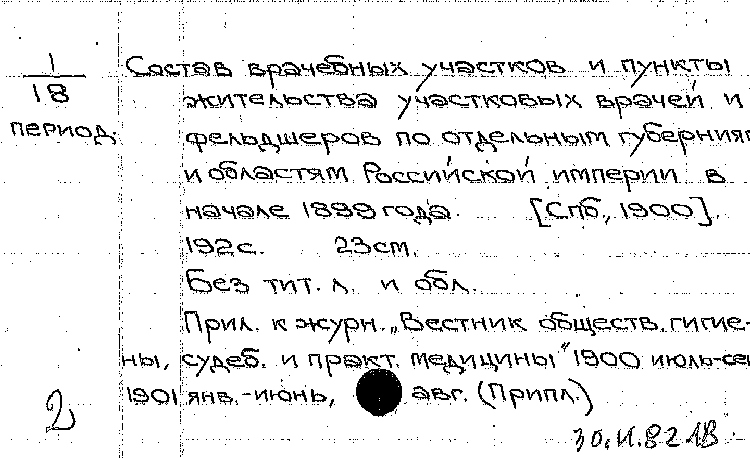 1/18
период.
Состав врачебных участков и пункты
жительства участковых врачей и
фельдшеров по отдельным губерниям
и областям Российской империи в
начале 1899 года. [Спб., 1900].
192с. 23см.
Без тит. л. и обл.
Прил. к журн. „Вестник обществ. гигие-
ны, судеб. и практ. медицины" 1900 июль-сен
1901 янв.-июнь, авг. (Припл.)
2